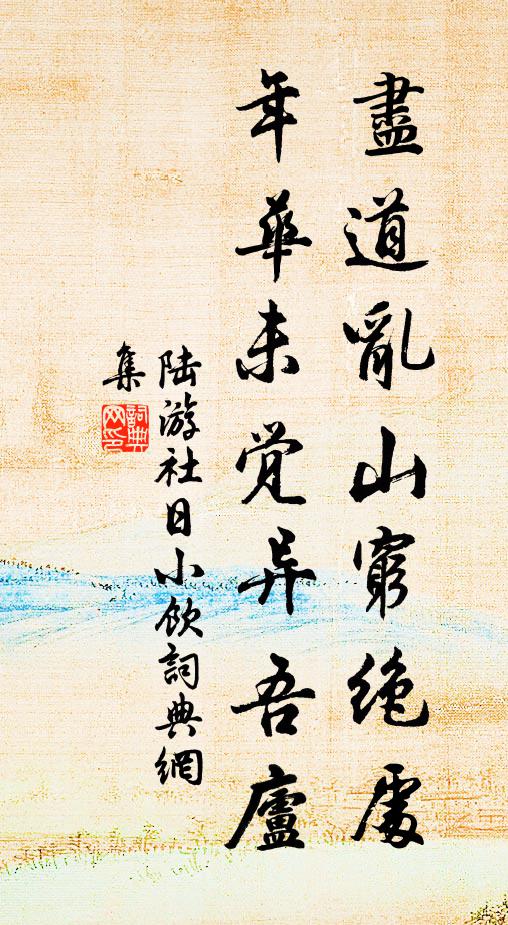 盡道亂山窮絶處
年華未覺异吾廬
陸游社日小飲詞典網
集
詞典网印